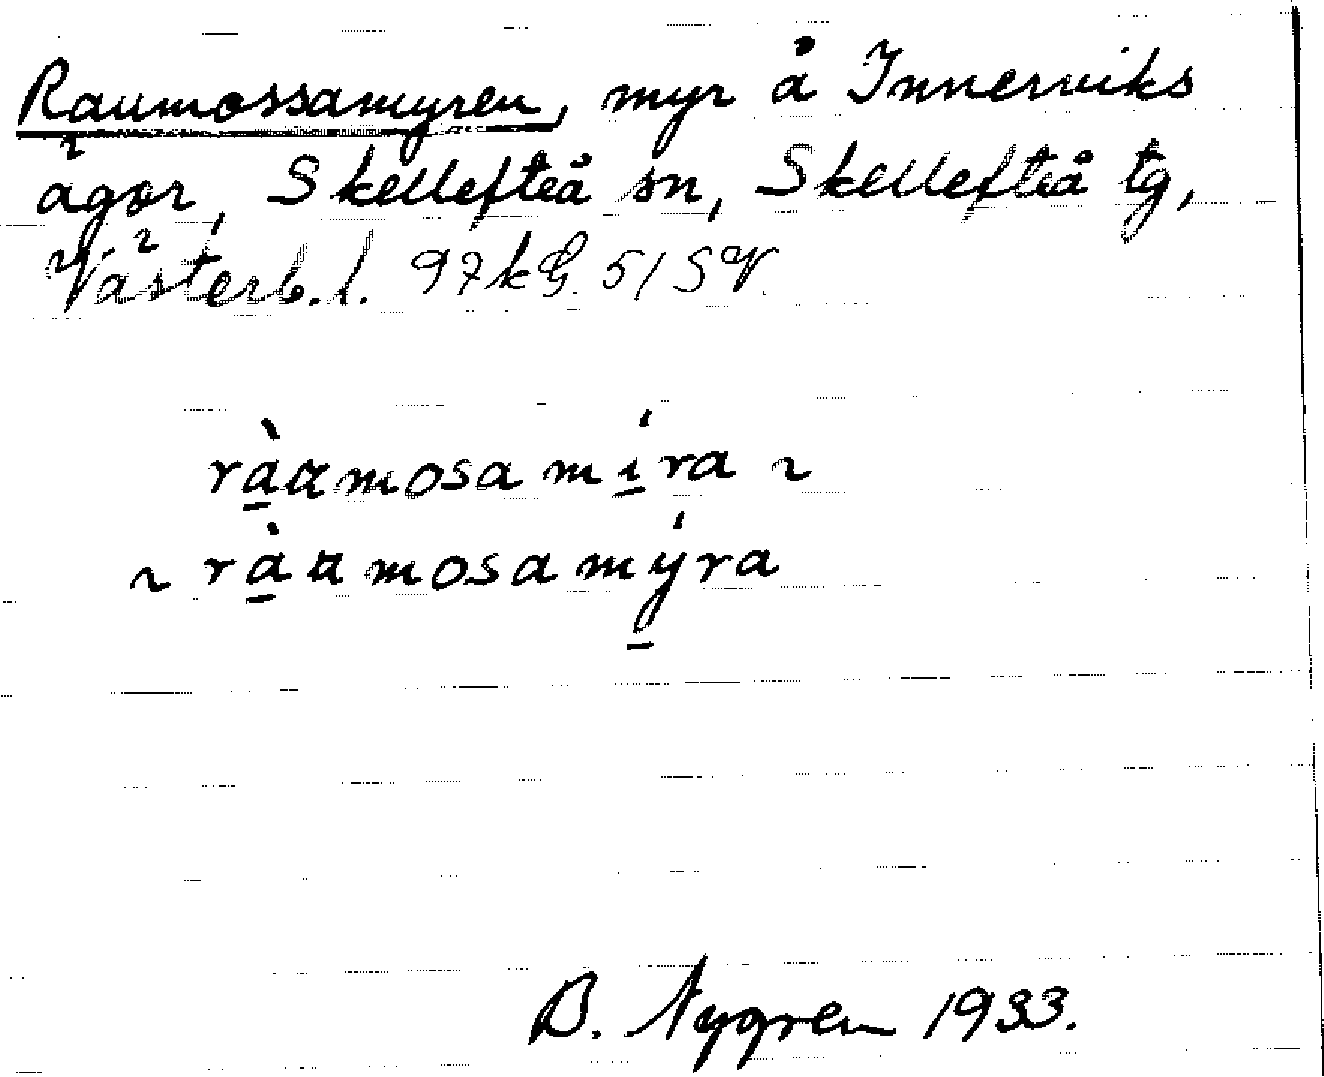 Raumossamyren, myr å Innerviks
ägor, Skellefteå sn, Skellefteå tg,
Västerb. l. 97kG. 5/SV.
rà̱ɑmosamí̱ra ~
~ rà̱ɑmosamý̱ra
B. Nygren 1933.